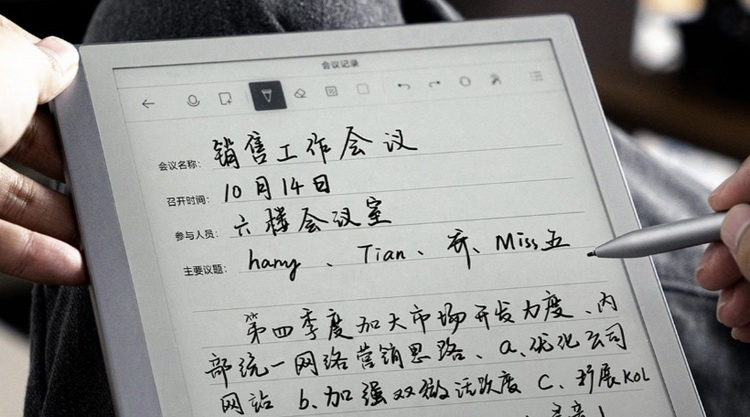 会议记录
会议名称: 销售工作会议
召开时间: 10月14日
参与人员: 六楼会议室
主要议题: hany、Tian、乔、Miss五
第四季度加大市场开发力度、内
部统一网络营销思路、a.优化公司
网站 b.加强双微活跃度 C.扩展KOL